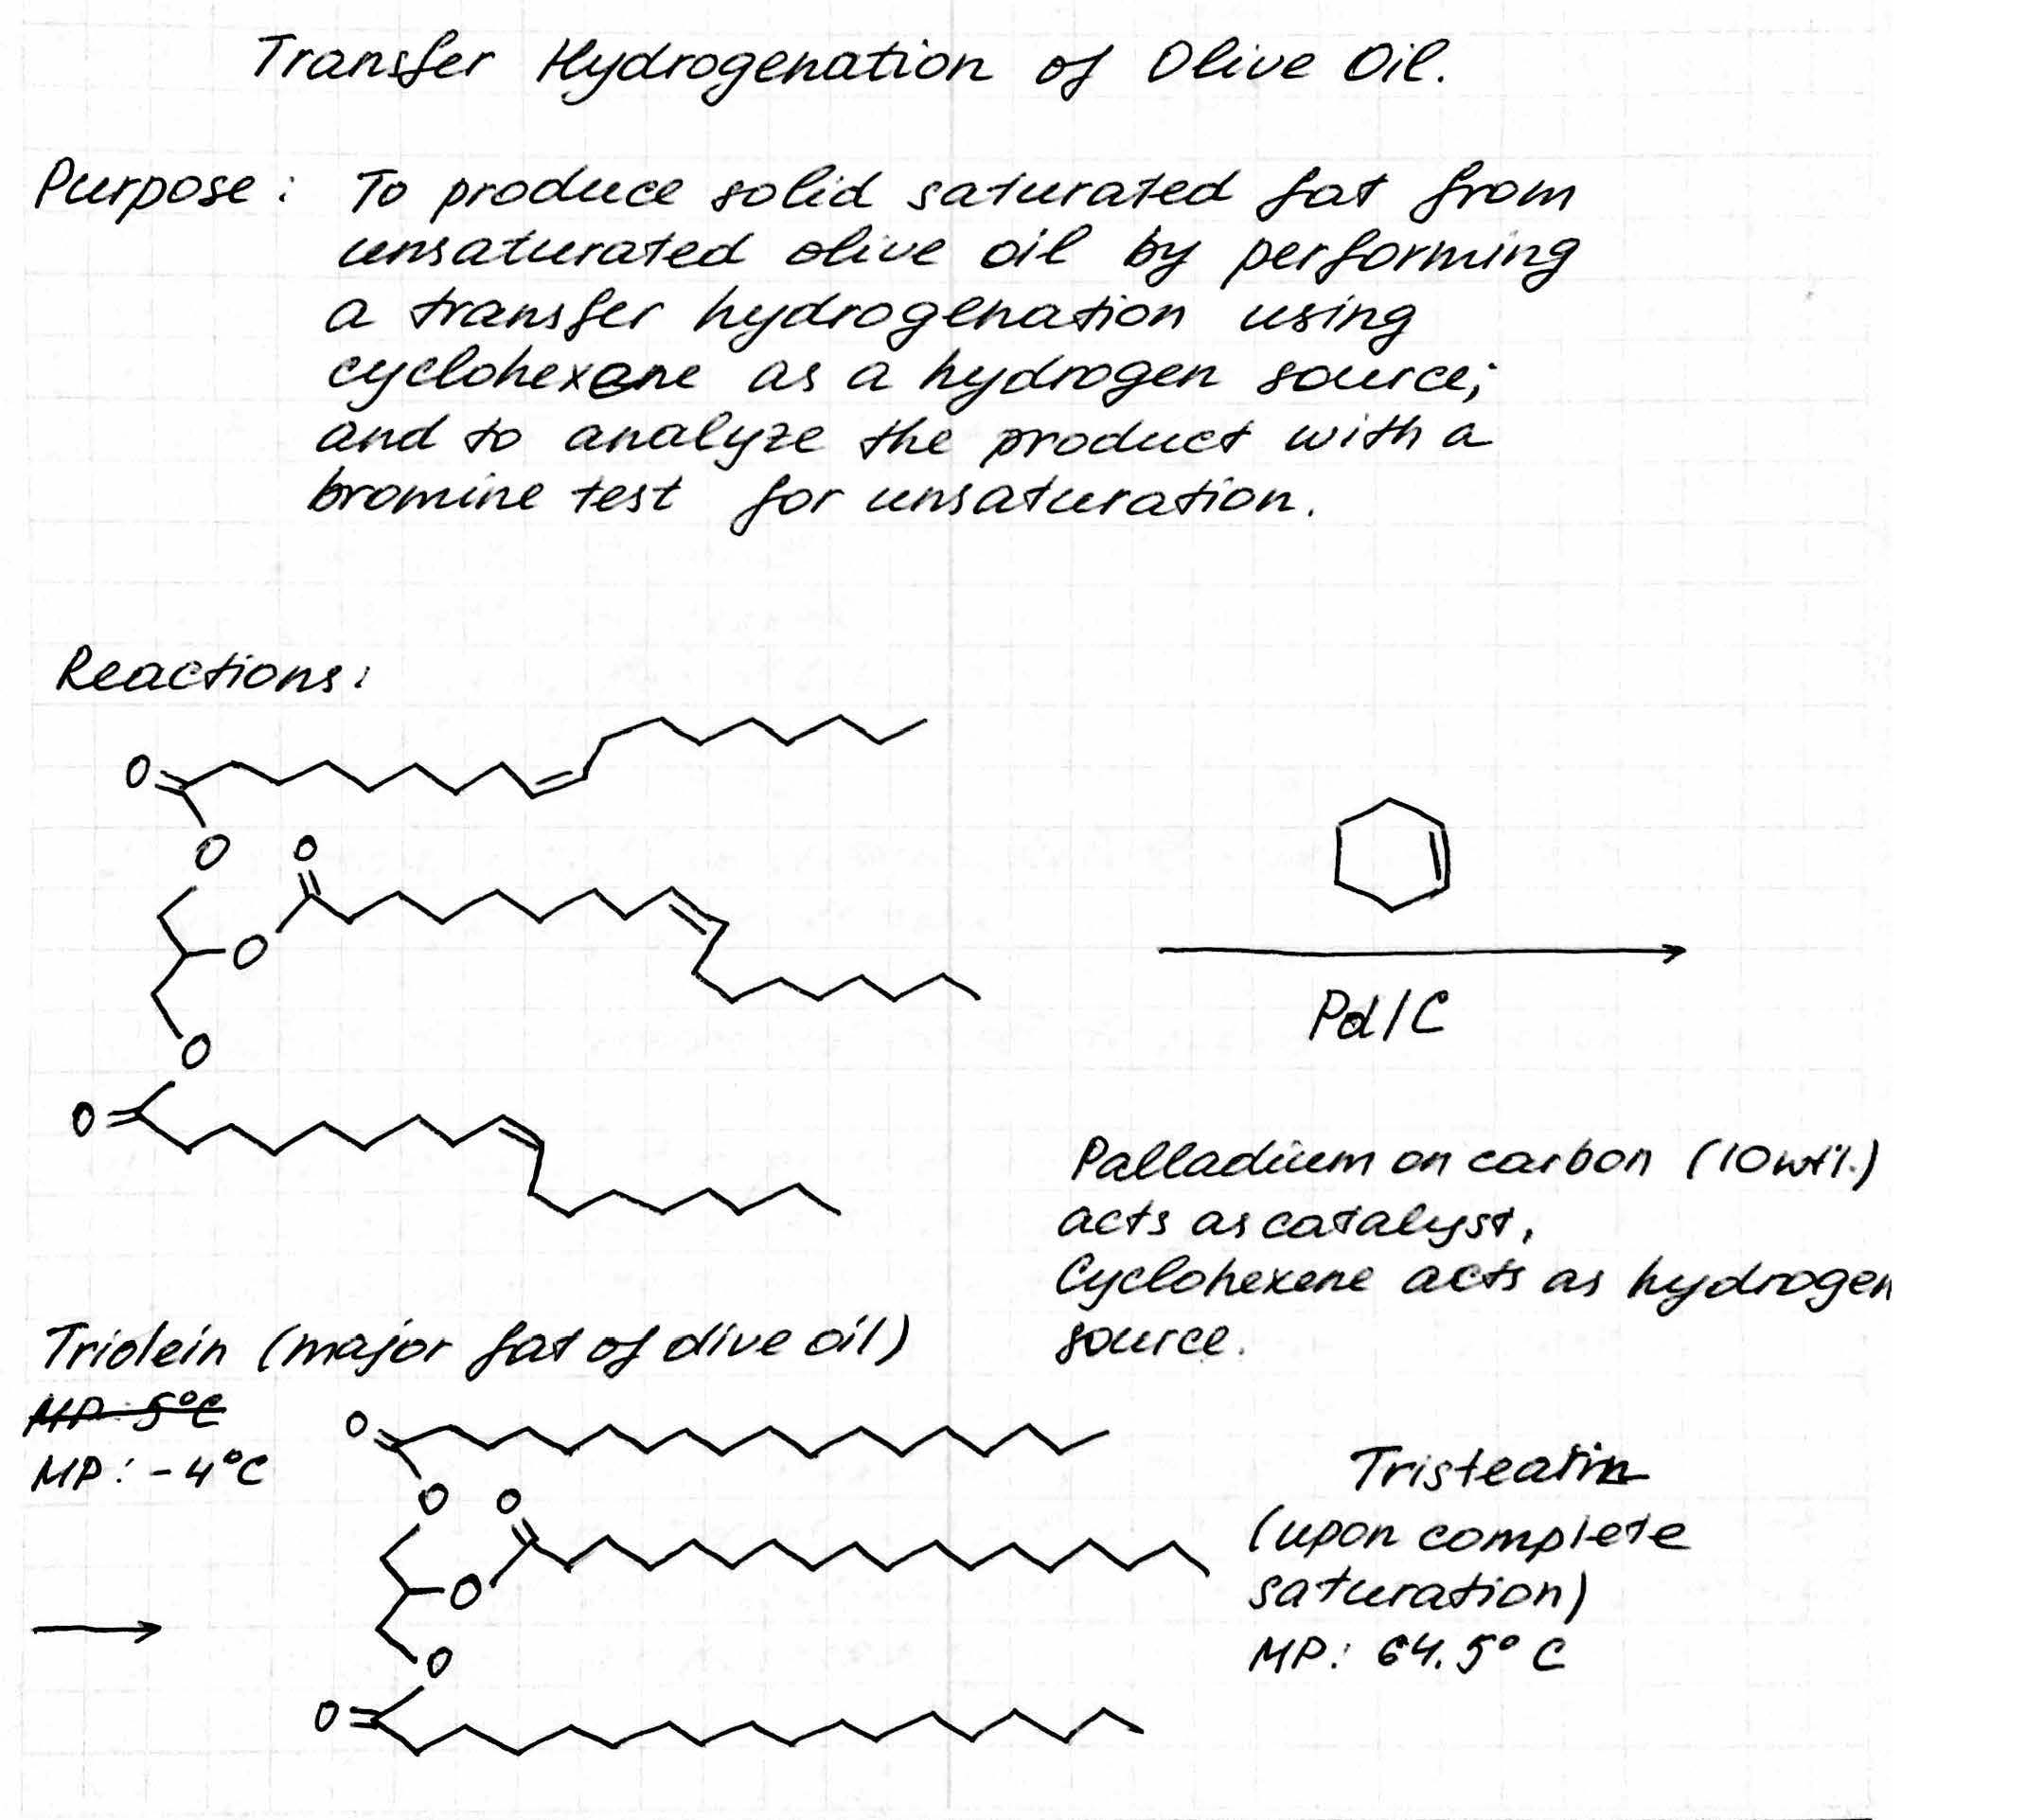 Transfer Hydrogenation of Olive Oil.
Purpose: To produce solid saturated fat from
unsaturated olive oil by performing
a transfer hydrogenation using
cyclohexene as a hydrogen source;
and to analyze the product with a
bromine test for unsaturation.
Reactions:
O
O
O
O
O
O
Pd/C
Palladium on carbon (10wt%)
acts as catalyst,
Cyclohexene acts as hydrogen
source.
Triolein (major fat of olive oil)
MP: 5°C
MP: -4°C
O
O
O
O
O
O
Tristearin
(upon complete
saturation)
MP: 64.5°C